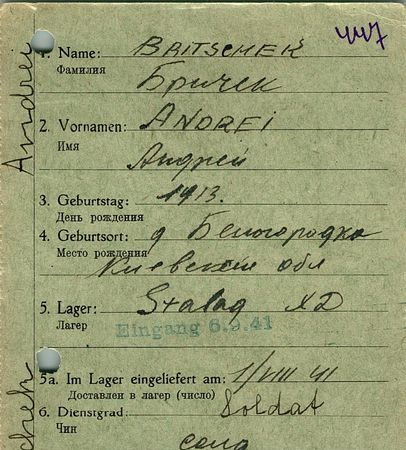 447
1. Name: BRITSCHEK
Фамилия Бричек
2. Vornamen: ANDREI
Имя
Андрей
3. Geburtstag: 1913.
День рождения
4. Geburtsort: д Белогородка
Место рождения
Киевской обл
5. Lager: Stalag XD
Лагер
Eingang 6.9.41
5a. Im Lager eingeliefert am: 1/VIII 41
Доставлен в лагер (число)
6. Dienstgrad: Soldat
Чин
Andrei